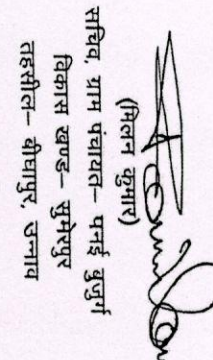 (मिलन कुमार)
सचिव, ग्राम पंचायत– पनई खुर्द
विकास खण्ड– सुमेरपुर
तहसील– बीघापुर, उन्नाव